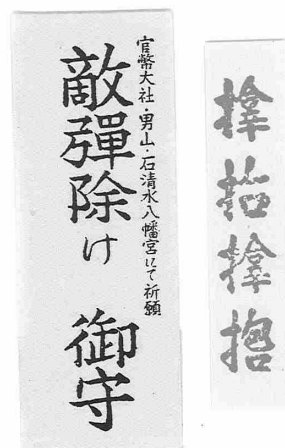 官幣大社・男山・石清水八幡宮にて祈願
敵彈除け 御守